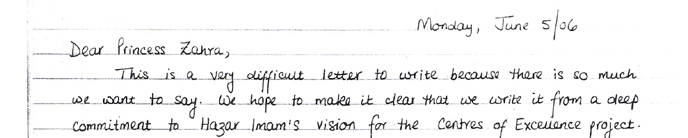 Monday, June 5/06
Dear Princess Zahra,
This is a very difficult letter to write because there is so much
we want to say. We hope to make it clear that we write it from a deep
commitment to Hazar Imam's vision for the Centres of Excellence project.